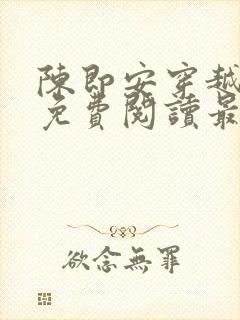 陳即安穿越
免費閱讀最
欲念無罪